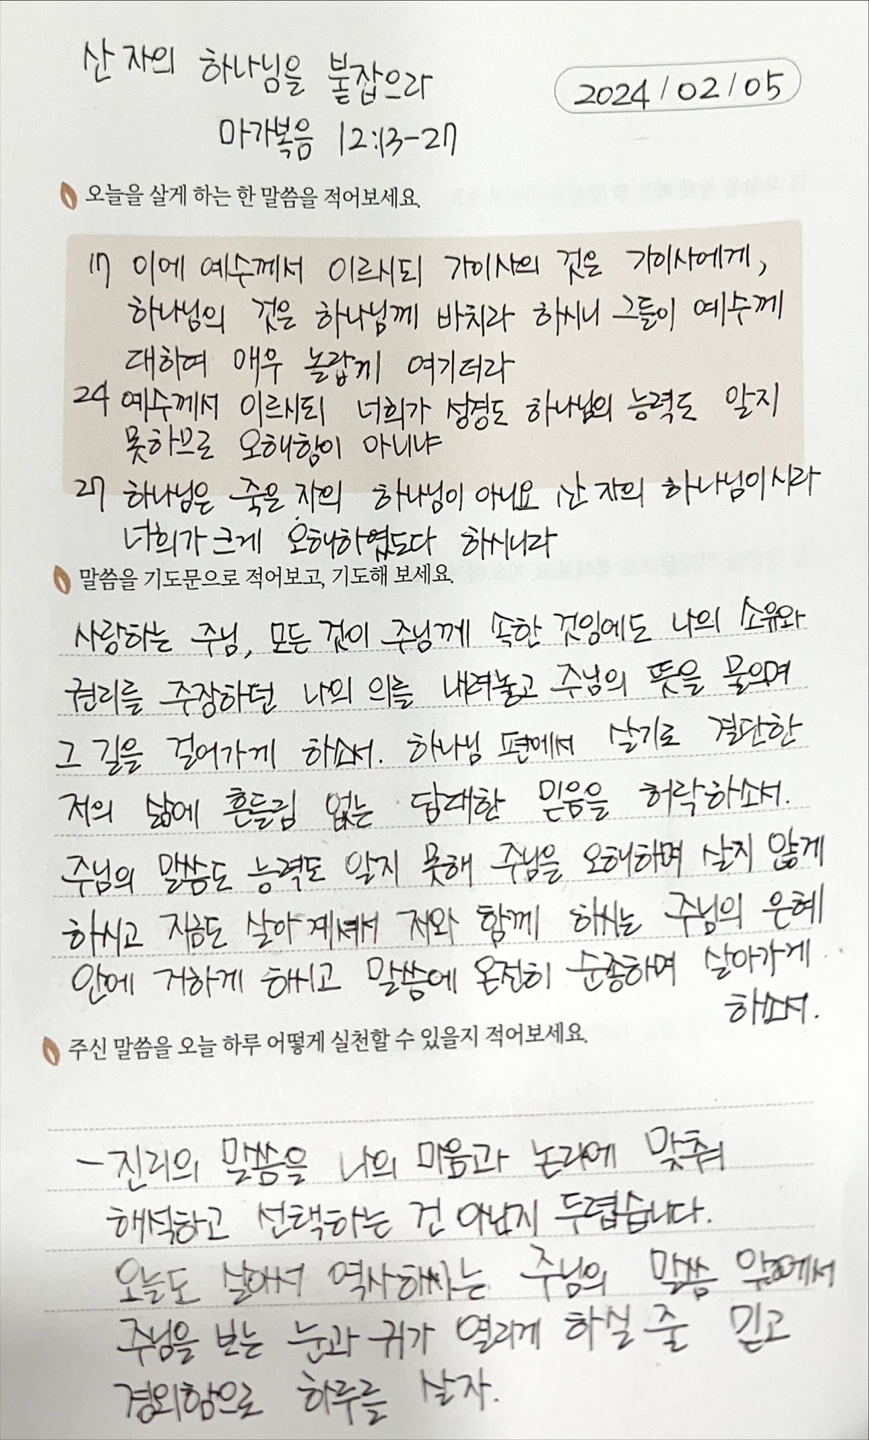 산 자의 하나님을 붙잡으라
2024/02/05
마가복음 12:13-27
오늘을 살게 하는 한 말씀을 적어보세요.
17 이에 예수께서 이르시되 가이사의 것은 가이사에게,
하나님의 것은 하나님께 바치라 하시니 그들이 예수께
대하여 매우 놀랍게 여기더라
24 예수께서 이르시되 너희가 성경도 하나님의 능력도 알지
못하므로 오해함이 아니냐
27 하나님은 죽은 자의 하나님이 아니요 산 자의 하나님이시라
너희가 크게 오해하였도다 하시니라
말씀을 기도문으로 적어보고, 기도해 보세요.
사랑하는 주님, 모든 것이 주님께 속한 것임에도 나의 소유와
권리를 주장하던 나의 의를 내려놓고 주님의 뜻을 물으며
그 길을 걸어가게 하소서. 하나님 편에서 살기로 결단한
저의 삶에 흔들림 없는 담대한 믿음을 허락하소서.
주님의 말씀도 능력도 알지 못해 주님을 오해하며 살지 않게
하시고 지금도 살아 계셔서 저와 함께 하시는 주님의 은혜
안에 거하게 하시고 말씀에 온전히 순종하며 살아가게
하소서.
주신 말씀을 오늘 하루 어떻게 실천할 수 있을지 적어보세요.
- 진리의 말씀을 나의 마음과 논리에 맞춰
해석하고 선택하는 건 아닌지 두렵습니다.
오늘도 살아서 역사하시는 주님의 말씀 앞에서
주님을 보는 눈과 귀가 열리게 하실 줄 믿고
경외함으로 하루를 살자.